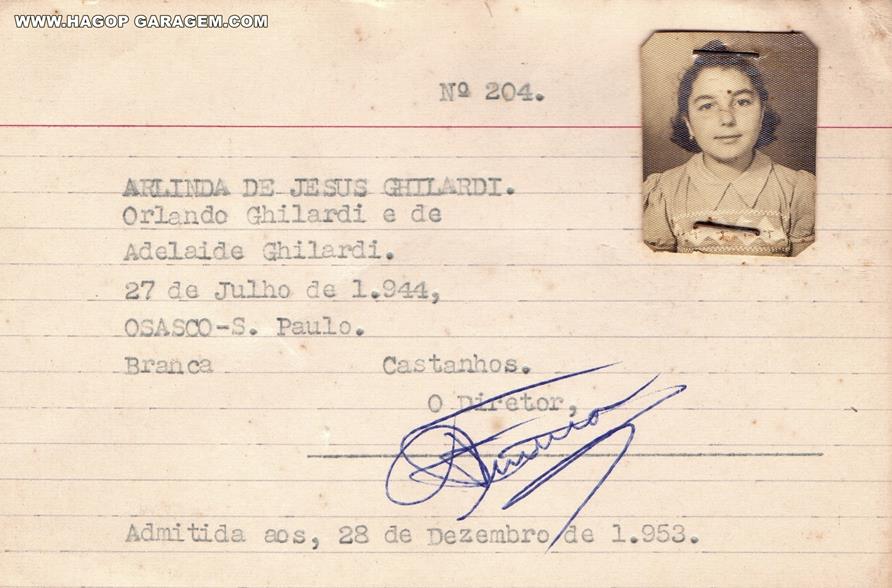 WWW.HAGOP GARAGEM.COM
Nº 204.
ARLINDA DE JESUS GHILARDI.
Orlando Ghilardi e de
Adelaide Ghilardi.
27 de Julho de 1.944,
OSASCO-S. Paulo.
Branca Castanhos.
O Diretor,
Admitida aos, 28 de Dezembro de 1.953.